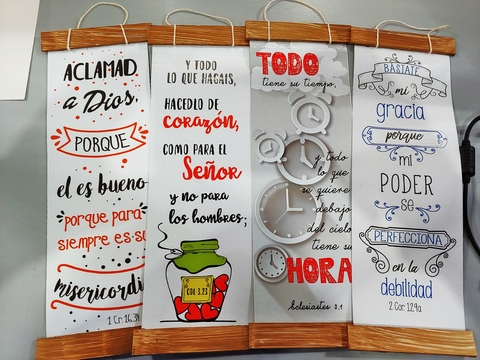 ACLAMAD
a Dios,
PORQUE
el es bueno
porque para
siempre es su
misericordi
1 Cr. 16.34
Y TODO
LO QUE HAGAIS,
HACEDLO DE
corazón,
COMO PARA EL
Señor
y no para
los hombres;
COL 3.23
TODO
tiene su tiempo,
y todo
lo que
se quiere
debajo
del cielo
tiene su
HORA
Eclesiastes 3.1
BASTATE
mi
gracia
porque
mi
PODER
se
PERFECCIONA
en la
debilidad
2 Cor. 12.9a